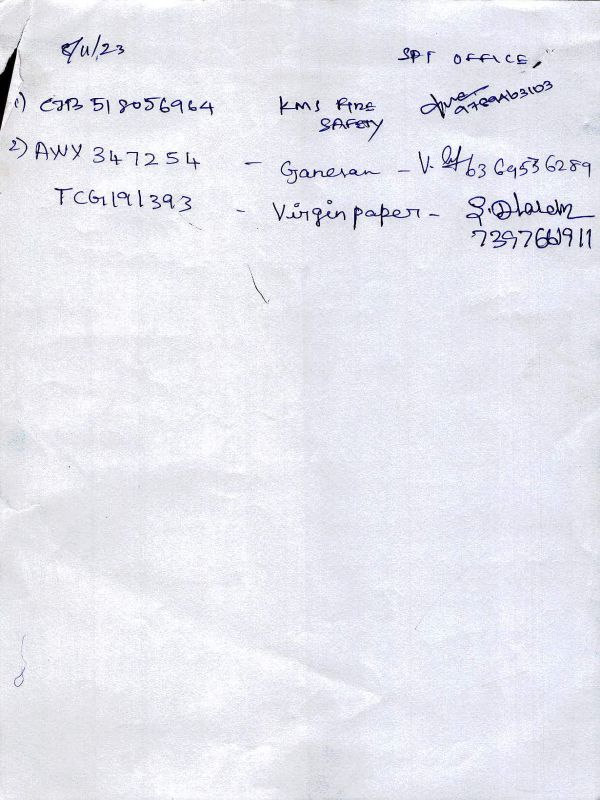 8/11/23 SPT OFFICE,
1) CJB 518056964 KMS FIRE
SAFETY
2) AWX 347254 - Ganesan - V. 6369536289
TCG191393 - Virgin paper -
7397661911